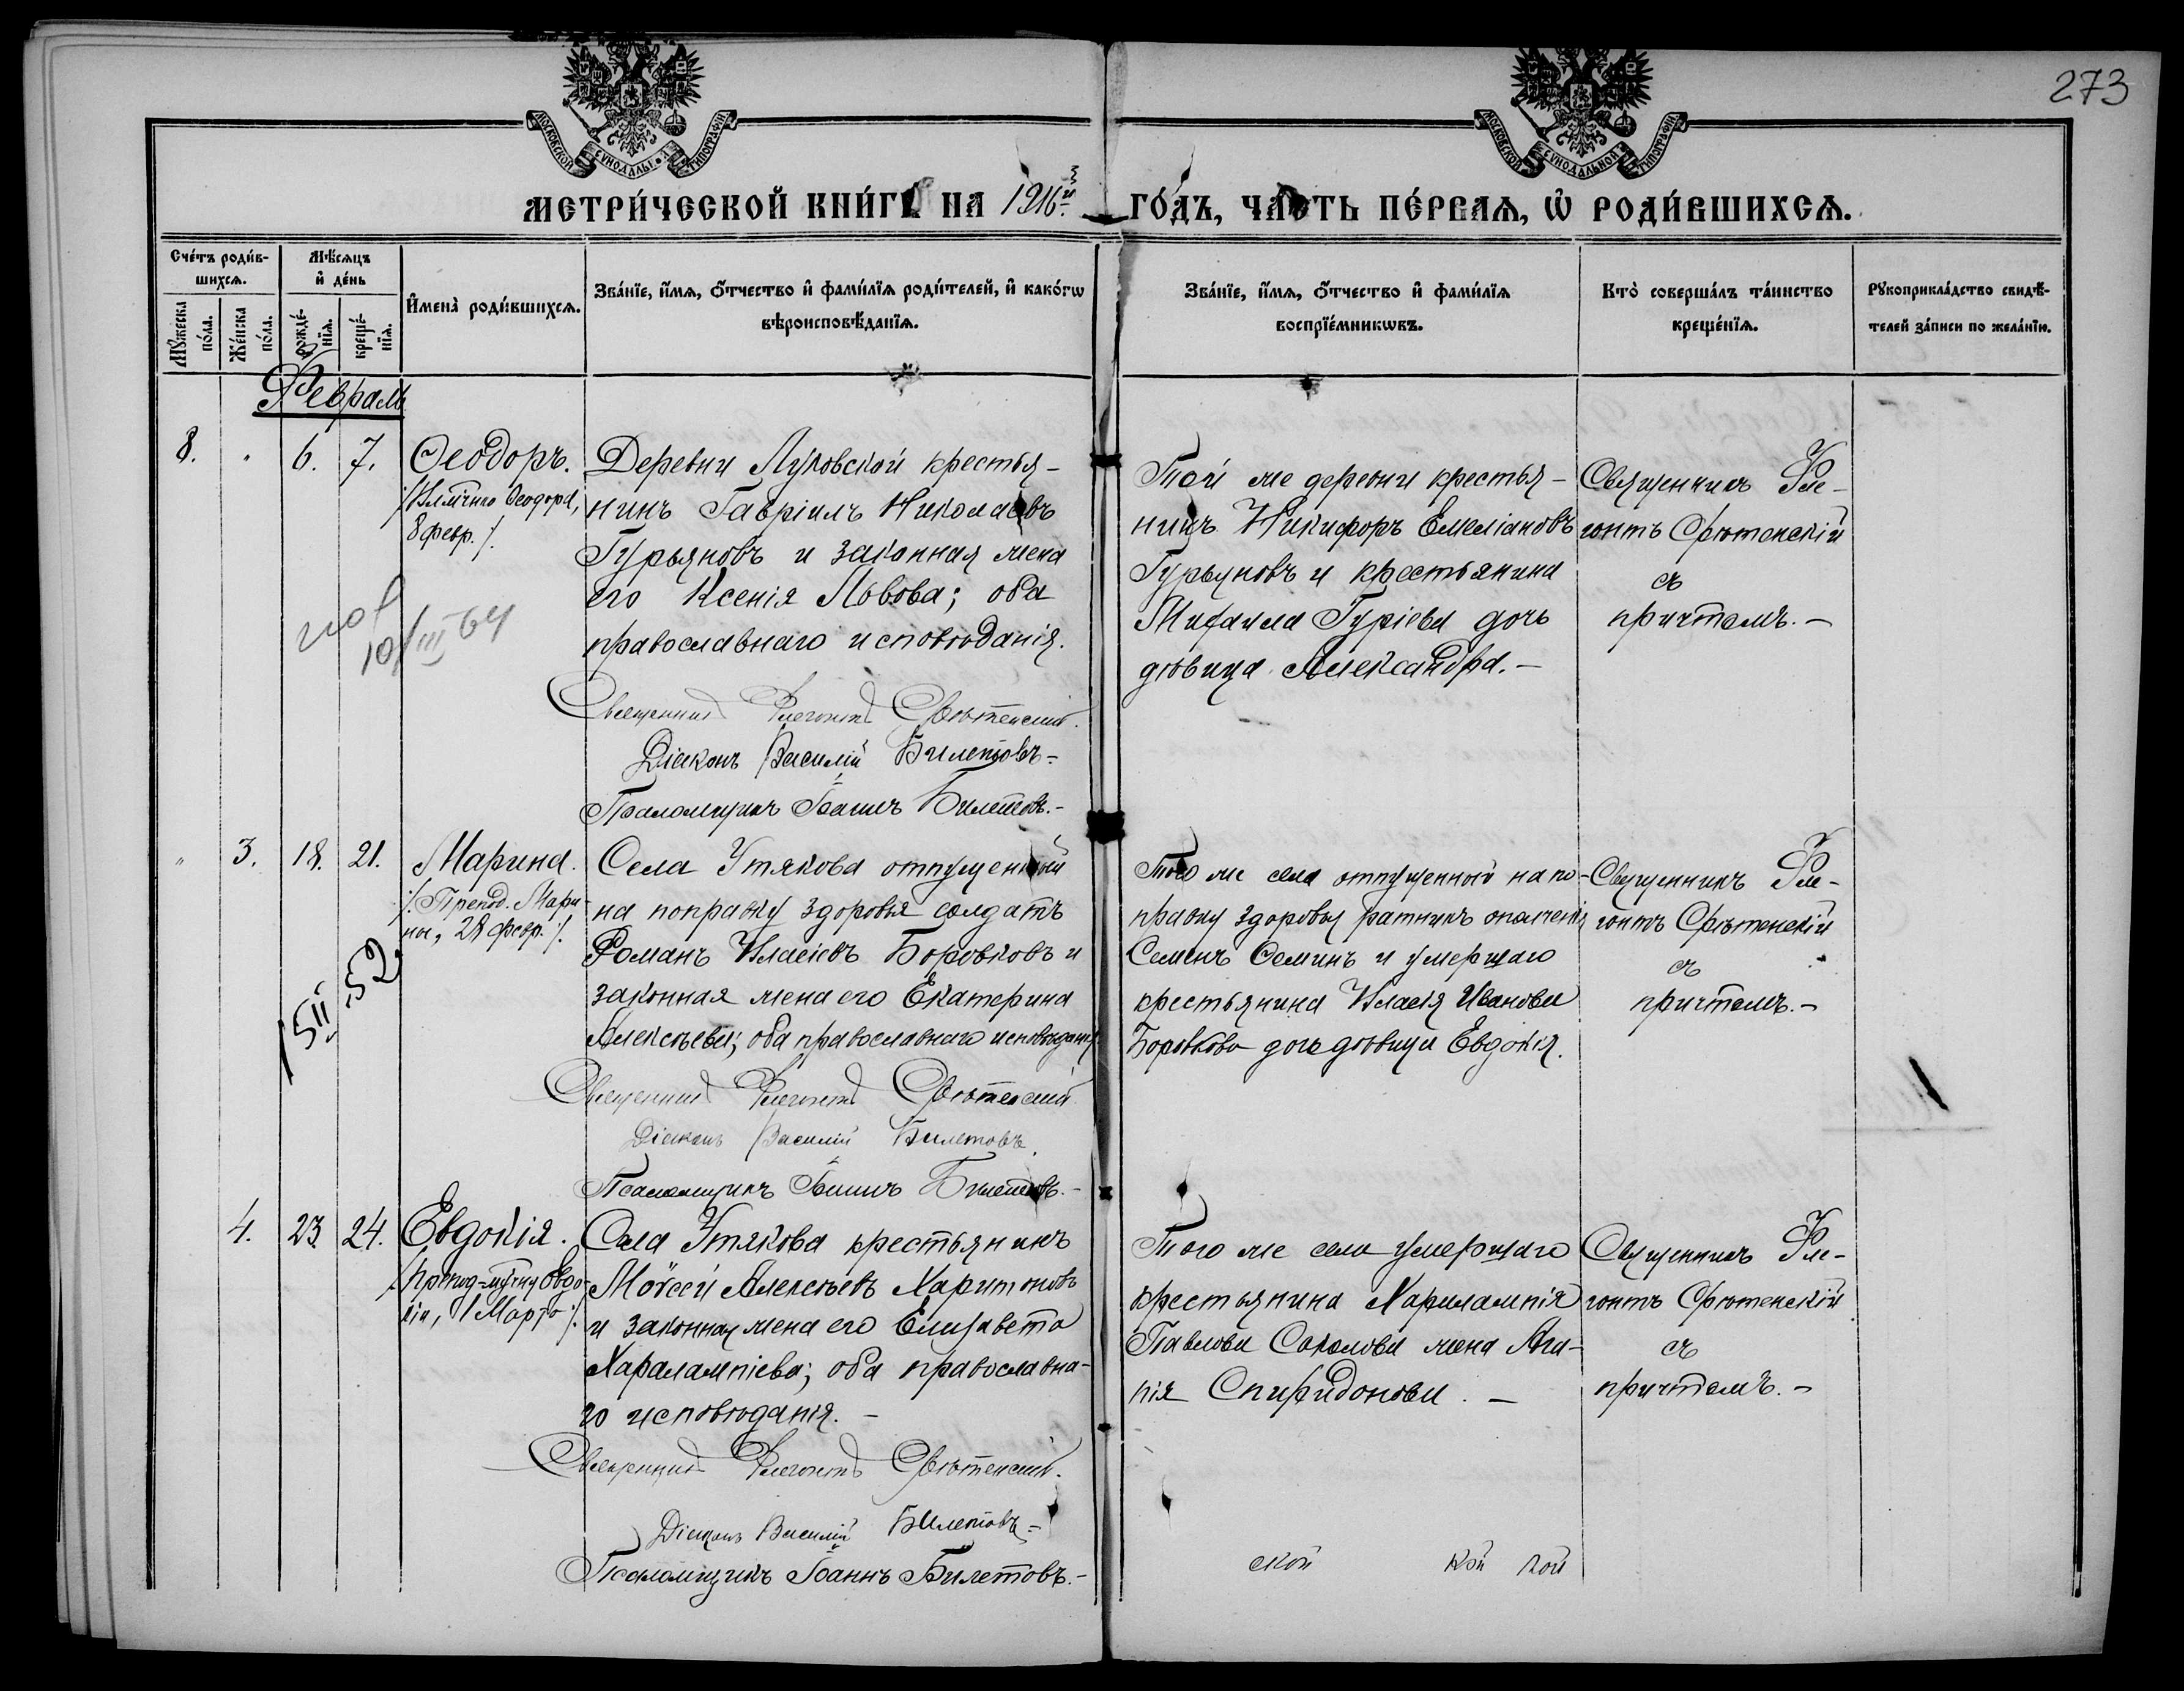 273
МОСКОВСКОЙ СѴНОДАЛЬНОЙ ТИПОГРАФІИ
МОСКОВСКОЙ СѴНОДАЛЬНОЙ ТИПОГРАФІИ
МЕТРИ́ЧЕСКОЙ КНИ́ГИ НА 1916й ГО́ДЪ, ЧА́СТЬ ПЕ́РВАѦ, Ѡ҆ РОДИ́ВШИХСѦ.
Сче́тъ роди́в-
шихсѧ.
Мꙋ́жеска по́ла.
Же́нска по́ла.
Мѣ́сѧцъ
и҆ де́нь
рожде́-
нїѧ.
креще́-
нїѧ.
И҆мена̀ роди́вшихсѧ.
Зва́нїе, и҆́мѧ, ѻ҆́тчество и҆ фами́лїѧ роди́телей, и҆ како́гѡ
вѣроисповѣ́данїѧ.
Зва́нїе, и҆́мѧ, ѻ҆́тчество и҆ фами́лїѧ
воспрїе́мникѡвъ.
Кто̀ соверша́лъ та́инство
креще́нїѧ.
Рꙋкоприкла́дство свидѣ́-
телей за́писи по жела́нїю.
Февраль
8. " 6. 7. Ѳеодоръ.
Ѳеодора,
8 февр. /.
10/III 64
Деревни Луковской крестья-
нинъ Гавріилъ Николаевъ
Гурьяновъ и законная жена
его Ксенія Львова; оба
православнаго исповѣданія.
Священникъ Флегонтъ Срѣтенскій.
Діаконъ Василій Билетовъ
Псаломщикъ Іоаннъ Билетовъ.-
Той же деревни крестья-
нинъ Никифоръ Емеліановъ
Гурьяновъ и крестьянина
Михаила Гуріева дочь
дѣвица Александра.-
Священникъ Фле-
гонтъ Срѣтенскій
съ
причтомъ.-
" 3. 18. 21. Марина.
/. Препод. Мари-
ны, 28 февр. /.
5 II 52
Села Утякова отпущенный
на поправку здоровья солдатъ
Романъ Власіевъ Боровковъ и
законная жена его Екатерина
Алексѣева; оба православнаго исповѣданія
Священникъ Флегонтъ Срѣтенскій
Діаконъ Василій Билетовъ
Псаломщикъ Іоаннъ Билетовъ.-
Того же села отпущенный на по-
правку здоровья ратникъ ополченія
Семенъ Ѳоминъ и умершаго
крестьянина Власія Иванова
Боровкова дочь дѣвица Евдокія.
Священникъ Фле-
гонтъ Срѣтенскій
съ
причтомъ.-
4. 23. 24. Евдокія.
/. Препод-м-ч-цы Евдо-
кіи, 1 Марта /.
Села Утякова крестьянинъ
Моѵсей Алексѣевъ Харитоновъ
и законная жена его Елизавета
Харалампіева; оба православна-
го исповѣданія.-
Священникъ Флегонтъ Срѣтенскій.
Діаконъ Василій Билетовъ
Псаломщикъ Іоаннъ Билетовъ.-
Того же села умершаго
крестьянина Харалампія
Павлова Соколова жена Ага-
пія Спиридонова.-
Священникъ Фле-
гонтъ Срѣтенскій
съ
причтомъ.-
ской кой кой